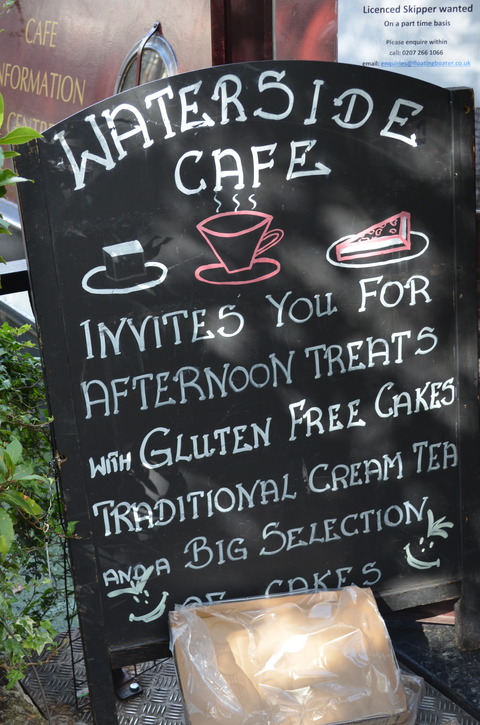 CAFE
INFORMATION
CENTRE
Licenced Skipper wanted
On a part time basis
Please enquire within
call: 0207 266 1066
email: enquiries@floatingboater.co.uk
WATERSIDE
CAFE
INVITES YOU FOR
AFTERNOON TREATS
WITH GLUTEN FREE CAKES
TRADITIONAL CREAM TEA
AND A BIG SELECTION
OF CAKES